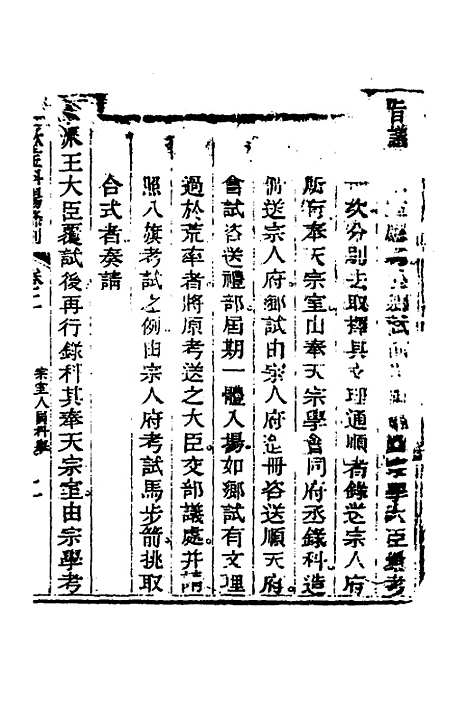 旨議
試宗學大臣考
一次分別去取擇其文理通順者錄送宗人府
所有奉天宗室由奉天宗學會同府丞錄科造
備送宗人府鄉試由宗人府造冊咨送順天府
會試咨送禮部屆期一體入場如鄉試有文理
過於荒率者將原考送之大臣交部議處并請
照八旗考試之例由宗人府考試馬步箭挑取
合式者奏請
派王大臣覆試後再行錄科其奉天宗室由宗學考
科場條例 卷 宗室人員科舉